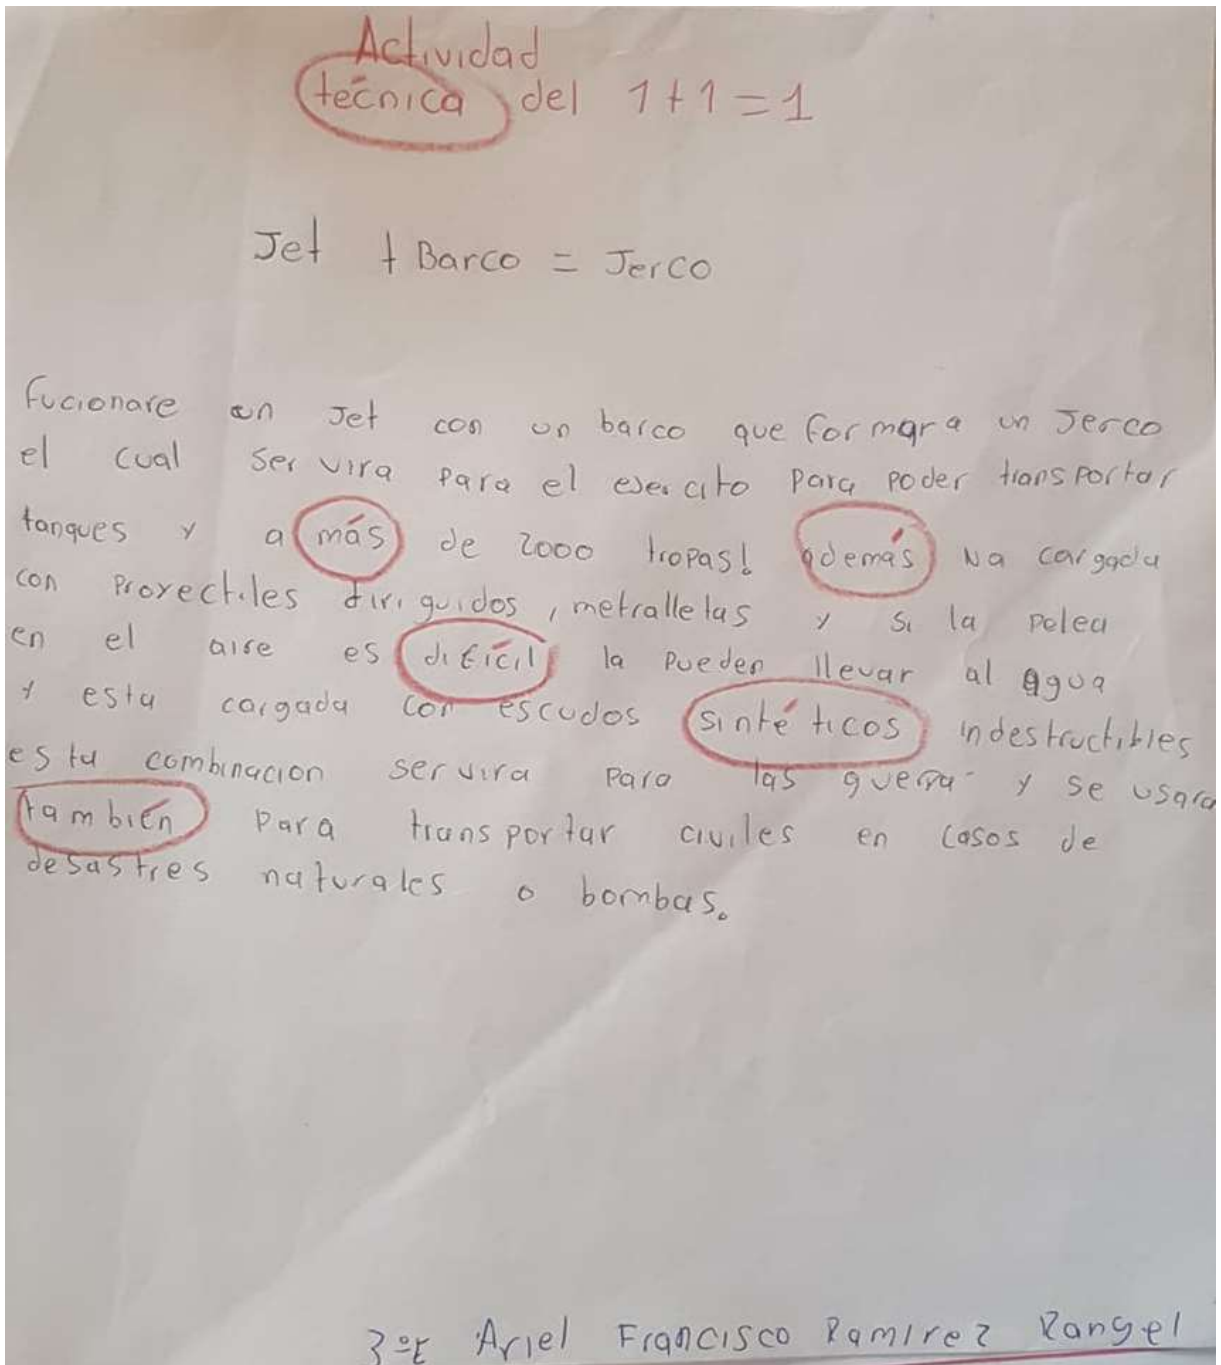 Actividad
técnica del 1+1=1
Jet + Barco = Jerco
fucionare un Jet con un barco que formara un Jerco
el cual servira para el ejercito para poder transportar
tanques y a más de 2000 tropas! además va cargada
con proyectiles diriguidos, metralletas y si la pelea
en el aire es difícil la pueden llevar al agua
y esta cargada con escudos sintéticos indestructibles
esta combinacion servira para las guerra y se usara
también para transportar civiles en casos de
desastres naturales o bombas.
3ºE Ariel Francisco Ramirez Rangel